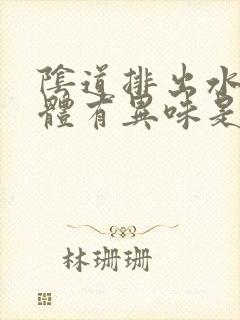 陰道排出水
體有異味是
林珊珊